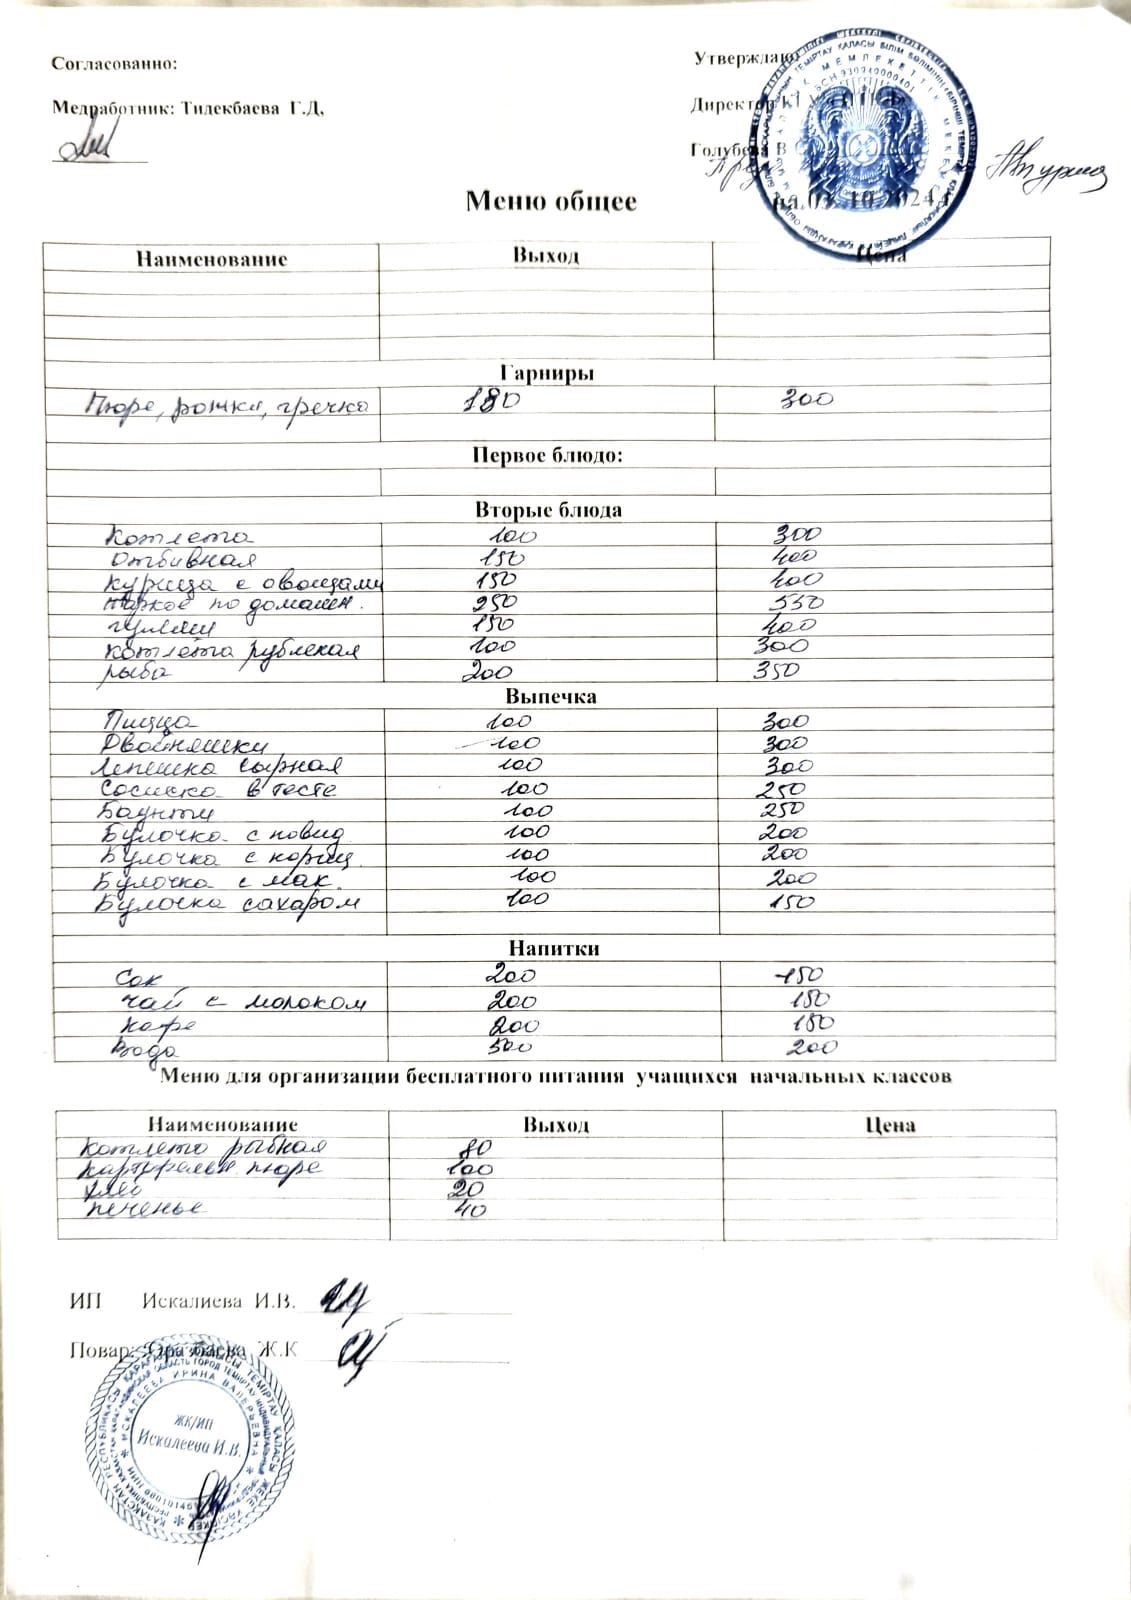 Согласованно:
Утверждаю
Медработник: Тидекбаева Г.Д,
Директор
Голубева В
Меню общее
на 03.10.2024
Наименование Выход Цена
Гарниры
Пюре, рожки, гречка 180 300
Первое блюдо:
Вторые блюда
Котлета 100 300
Отбивная 150 400
Курица с овощами 150 400
Жаркое по домашн. 250 550
гуляш 150 400
Котлета рубленая 100 300
рыба 200 350
Выпечка
Пицца 100 300
Двойняшки 100 300
Лепешка сырная 100 300
Сосиска в тесте 100 250
Баунти 100 250
Булочка с повид 100 200
Булочка с кориц. 100 200
Булочка с мак. 100 200
Булочка сахаром 100 150
Напитки
Сок 200 150
Чай с молоком 200 150
Кофе 200 150
Вода 500 200
Меню для организации бесплатного питания учащихся начальных классов
Наименование Выход Цена
Котлета рыбная 80
Картофельн пюре 100
хлеб 20
печенье 40
ИП Искалиева И.В.
Повар: Оразбаева Ж.К
ИСКАЛЕЕВА ИРИНА ВАЛЕРЬЕВНА
ЖК/ИП
Искалеева И.В.